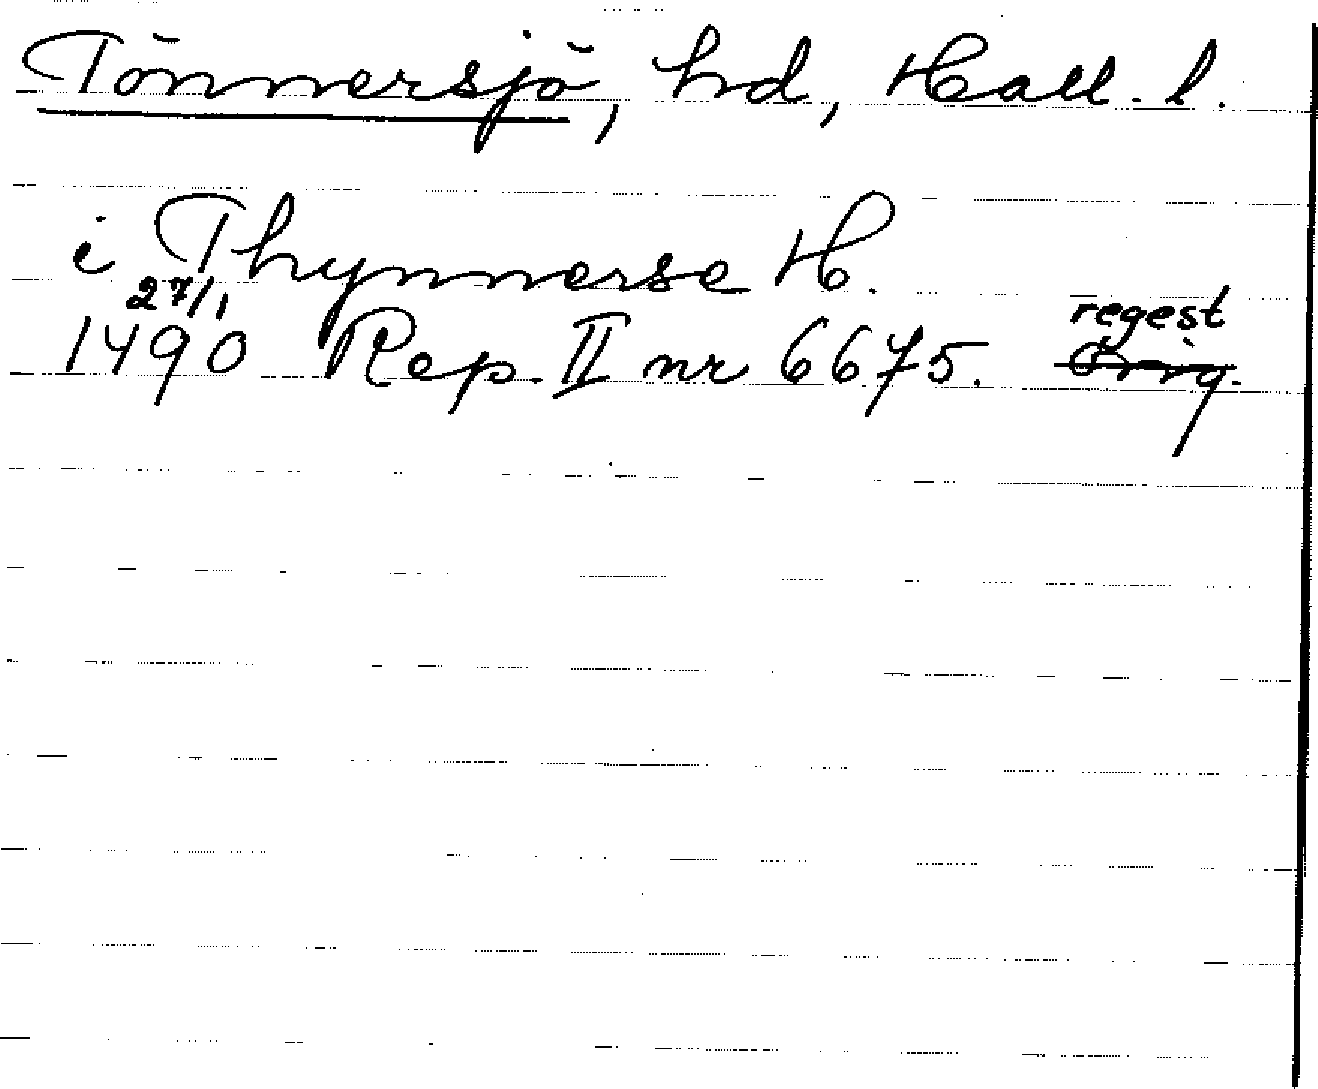 Tönnersjö, hd, Hall. l.
i Thynnerse H.
27/1
1490 Rep. II nr 6675. regest
Orig.